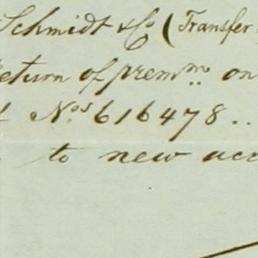 Schmidt & Co (Transfer
return of premm on
Nos 616478..
to new acc